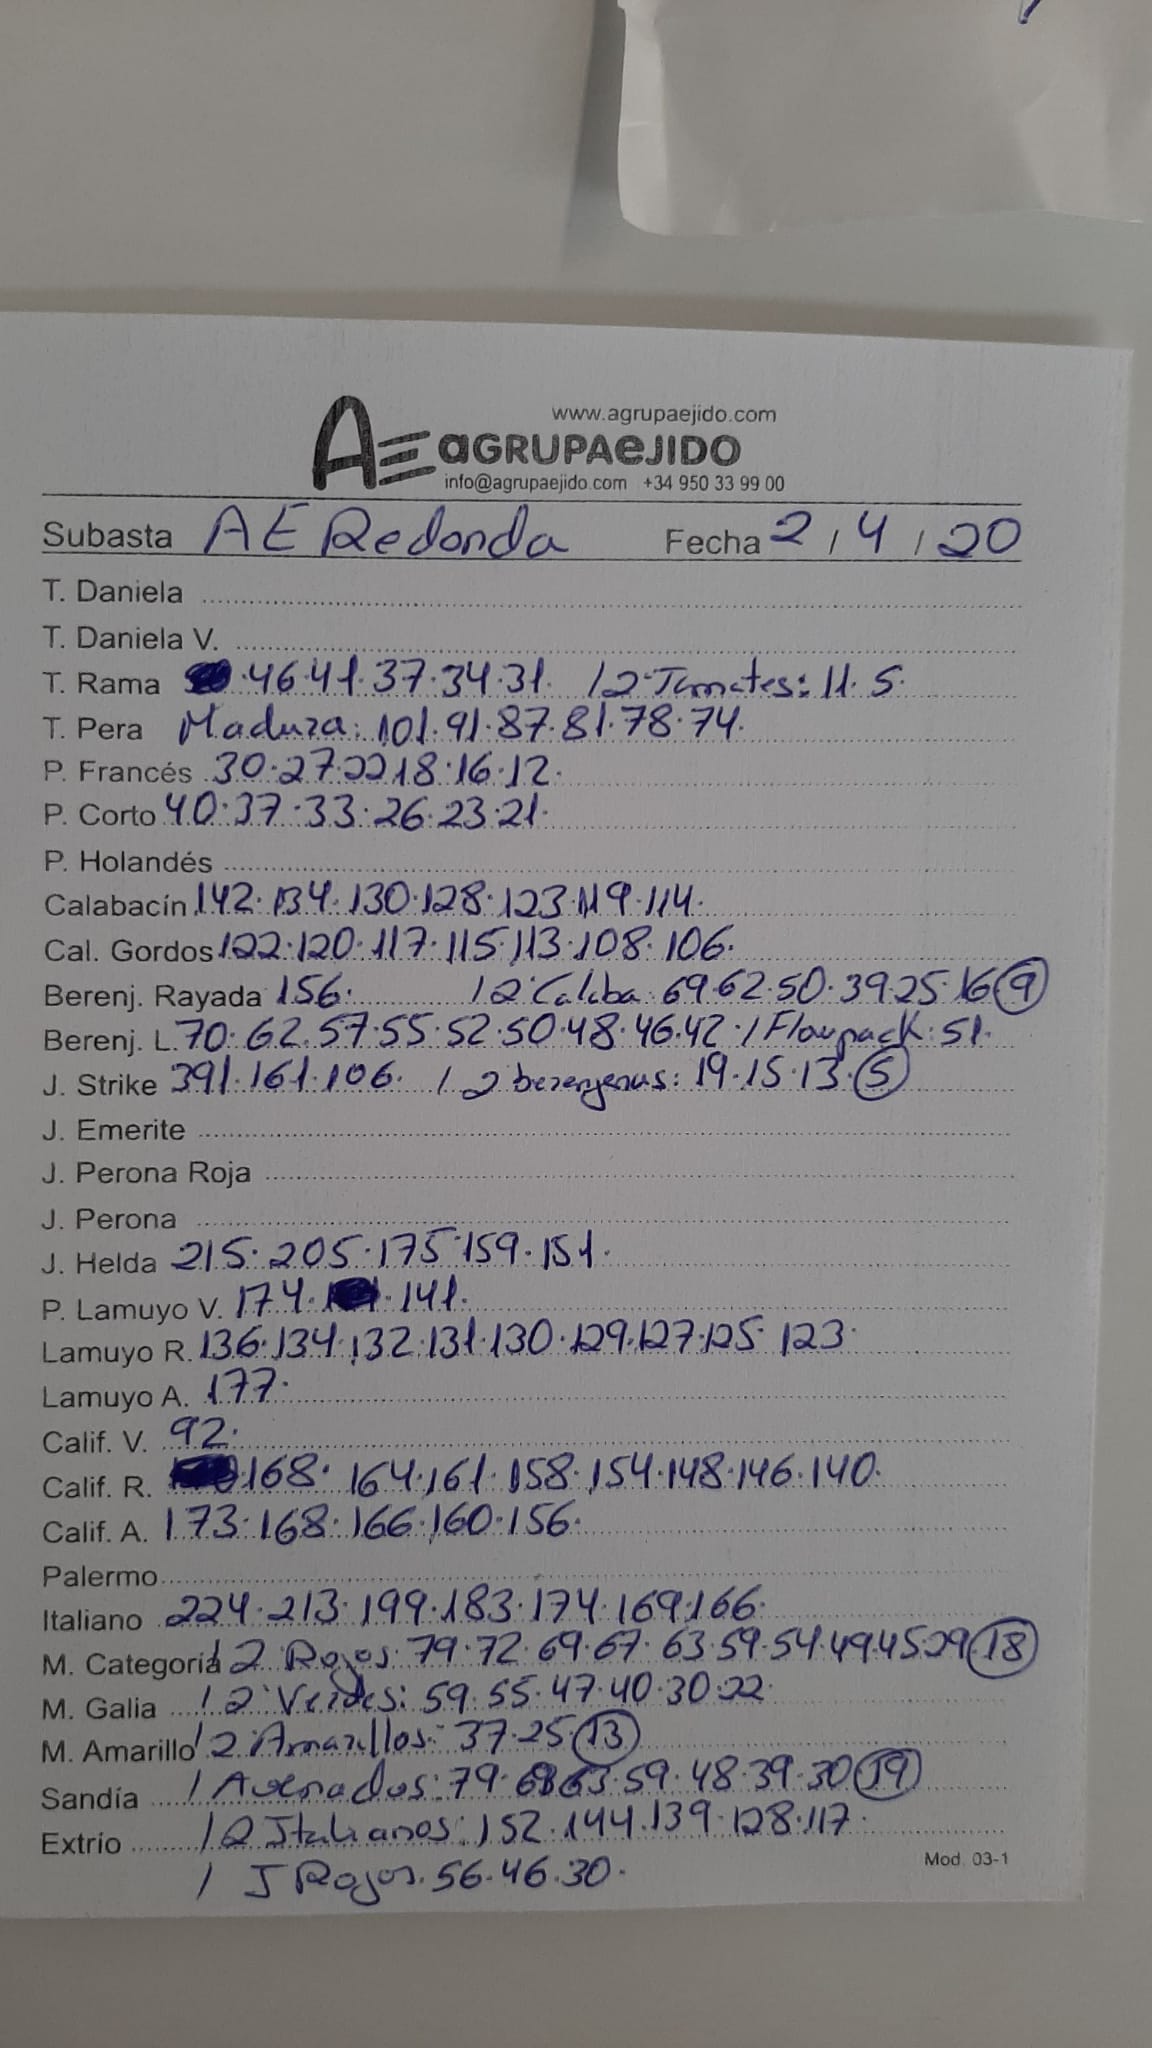 www.agrupaejido.com
AE aGRUPAeJIDO
info@agrupaejido.com +34 950 33 99 00
Subasta AE Redonda Fecha 2/4/20
T. Daniela
T. Daniela V.
T. Rama ·46·41·37·34·31· /2ªTomates: 11·5·
T. Pera Madura: 101·91·87·81·78·74·
P. Francés 30·27·22·18·16·12·
P. Corto 40·37·33·26·23·21·
P. Holandés
Calabacín 142·134·130·128·123·119·114·
Cal. Gordos 122·120·117·115·113·108·106·
Berenj. Rayada 156· /2ªCalaba: 69·62·50·39·25·16 (9)
Berenj. L. 70·62·57·55·52·50·48·46·42·/Flowpack: 51·
J. Strike 391·161·106· /2 berenjenas: 19·15·13·(5)
J. Emerite
J. Perona Roja
J. Perona
J. Helda 215·205·175·159·151·
P. Lamuyo V. 174· ·141·
Lamuyo R. 136·134·132·131·130·129·127·125·123·
Lamuyo A. 177·
Calif. V. 92·
Calif. R. ·168·164·161·158·154·148·146·140·
Calif. A. 173·168·166·160·156·
Palermo
Italiano 224·213·199·183·174·169·166·
M. Categoría /2 Rojos: 79·72·69·67·63·59·54·49·45·29·(18)
M. Galia /2ªVerdes: 59·55·47·40·30·22·
M. Amarillo /2ªAmarillos: 37·25·(13)
Sandía /Asenados: 79· 63·59·48·39·30 (19)
Extrio /2 Italianos: 152·144·139·128·117·
/ J Rojos·56·46·30·
Mod. 03-1